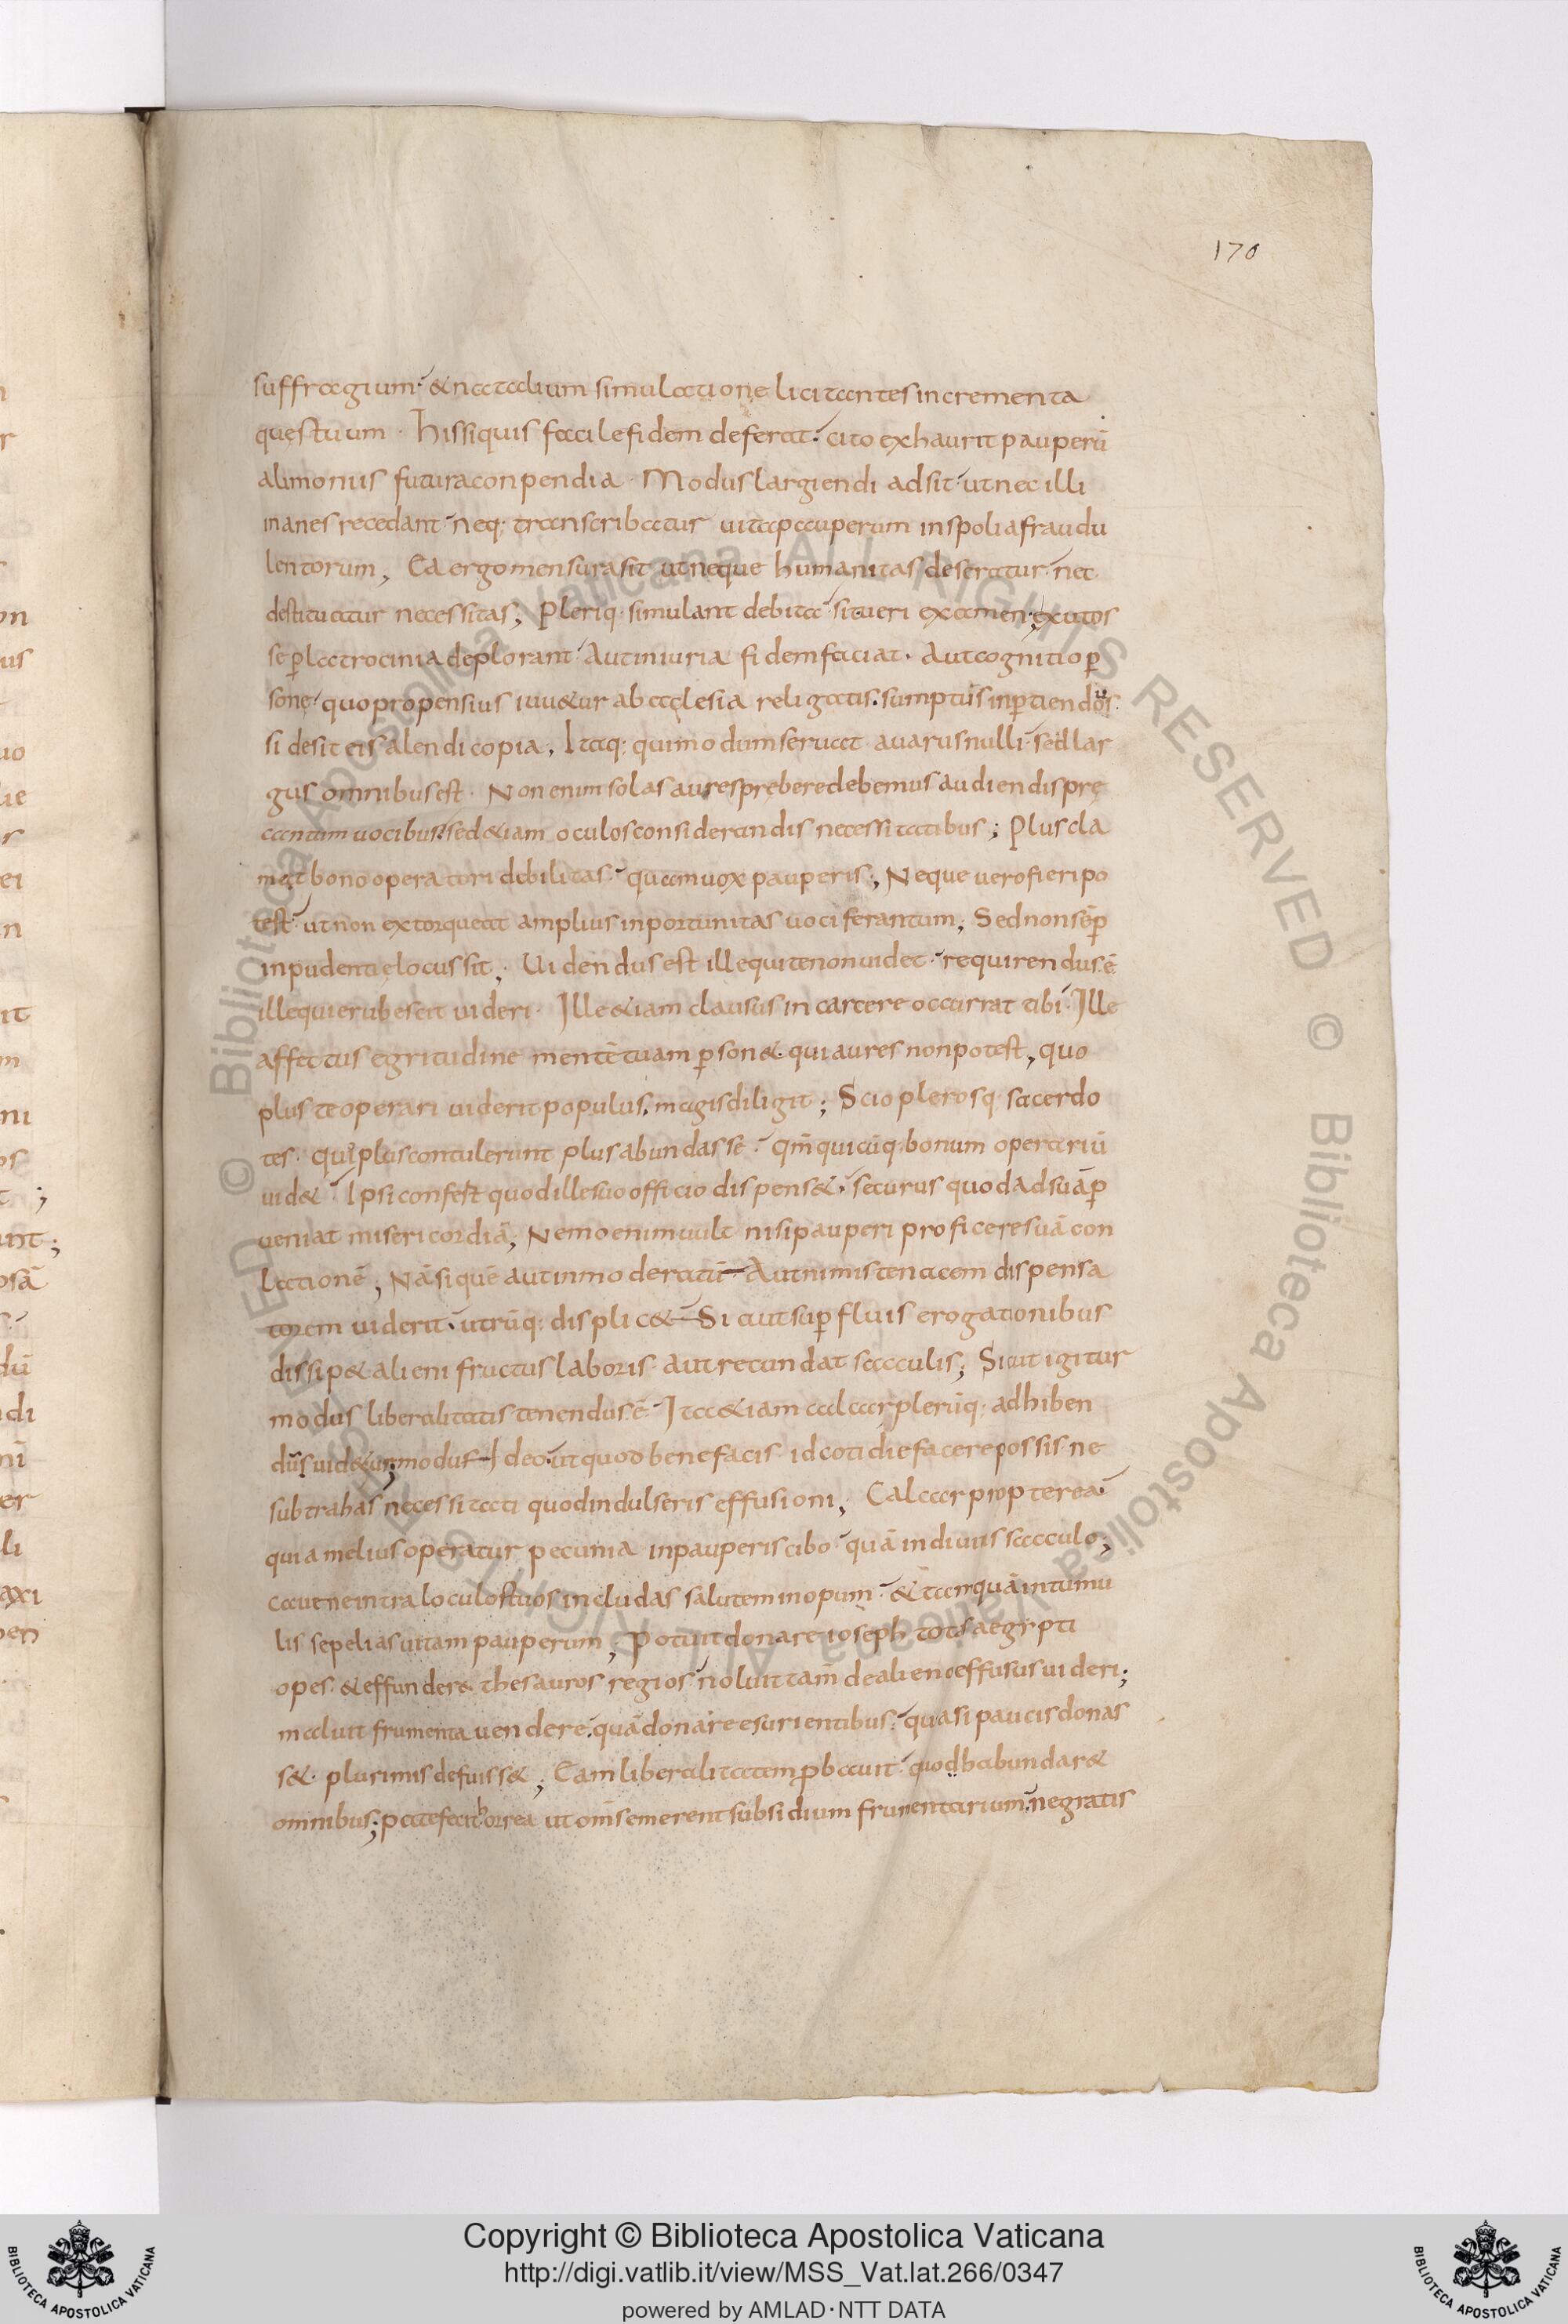 170
suffragium· & natalium simulatione licitantes incrementa
questuum· his siquis facile fidem deferat· cito exhaurit pauperū
alimoniis futura conpendia· Modus largiendi adsit· ut nec illi
inanes recedant· neq: transcribatur uita pauperum in spolia fraudu
lentorum; Ea ergo mensura sit ut neque humanitas deseratur· nec
destituatur necessitas; Pleriq· simulant debita· sit ueri examen· exutos
se ꝑ latrocinia deplorant· Aut iniuria fidem faciat· Aut cognitio ꝑ
sonę· quo propensius iuu&ur ab ecclesia religatis· sumptus inꝑtiendus·
si desit eis alendi copia; Itaq: qui modum seruat auarus nulli· sed lar
gus omnibus est· Non enim solas aures prębere debemus audiendis prę
cantum uocibus· sed &iam oculos considerandis necessitatibus; Plus cla
mat bono operatori debilitas· quam uox pauperis; Neque uero fieri po
test· ut non extorqueat amplius inportunitas uociferantum; Sed non sēꝑ
inpudentię locus sit; Uidendus est ille qui te non uidet· requirendus ē
ille qui erubescit uideri· Ille &iam clausus in carcere occurrat tibi· Ille
affectus egritudine mentē tuam ꝑson&· qui aures non potest, quo
plus te operari uiderit populus, magis diligit; Scio plerosq· sacerdo
tes· qui plus contulerunt plus abundasse· qm̄ quicūq· bonum operariū
uid& Ipsi confert quod ille suo officio dispens&· securus quod ad suā ꝑ
ueniat misericordiā; Nemo enim uult nisi pauperi proficere suā con
lationē; Nā si quē aut inmoderatū Aut nimis tenacem dispensa
torem uiderit· utrūq: displic& Si aut suꝑfluis erogationibus
dissip& alieni fructus laboris· aut recundat sacculis; Sicut igitur
modus liberalitatis tenendus ē· Ita &iam calcar plerūq: adhiben
dūs uid&ur; modus Ideo ut quod benefacis id cotidie facere possis ne
subtrahas necessitati quod indulseris effusioni; Calcar propterea
quia melius operatur pecunia in pauperis cibo· quā in diuitis sacculo;
caue ne intra loculos tuos includas salutem inopum· & tanquā in tumu
lis sepelias uitam pauperum; Potuit donare ioseph totas aegypti
opes· & effunder& thesauros regios· noluit tam̄ de alieno effusus uideri;
maluit frumenta uendere· quā donare esurientibus· quasi paucis donas
s&· plurimis defuiss&; Eam liberalitatem ꝓbauit· quod habundar&
omnibus; patefecit horrea ut om̄s emerent subsidium frumentarium· ne gratis
Copyright © Biblioteca Apostolica Vaticana
http://digi.vatlib.it/view/MSS_Vat.lat.266/0347
powered by AMLAD·NTT DATA